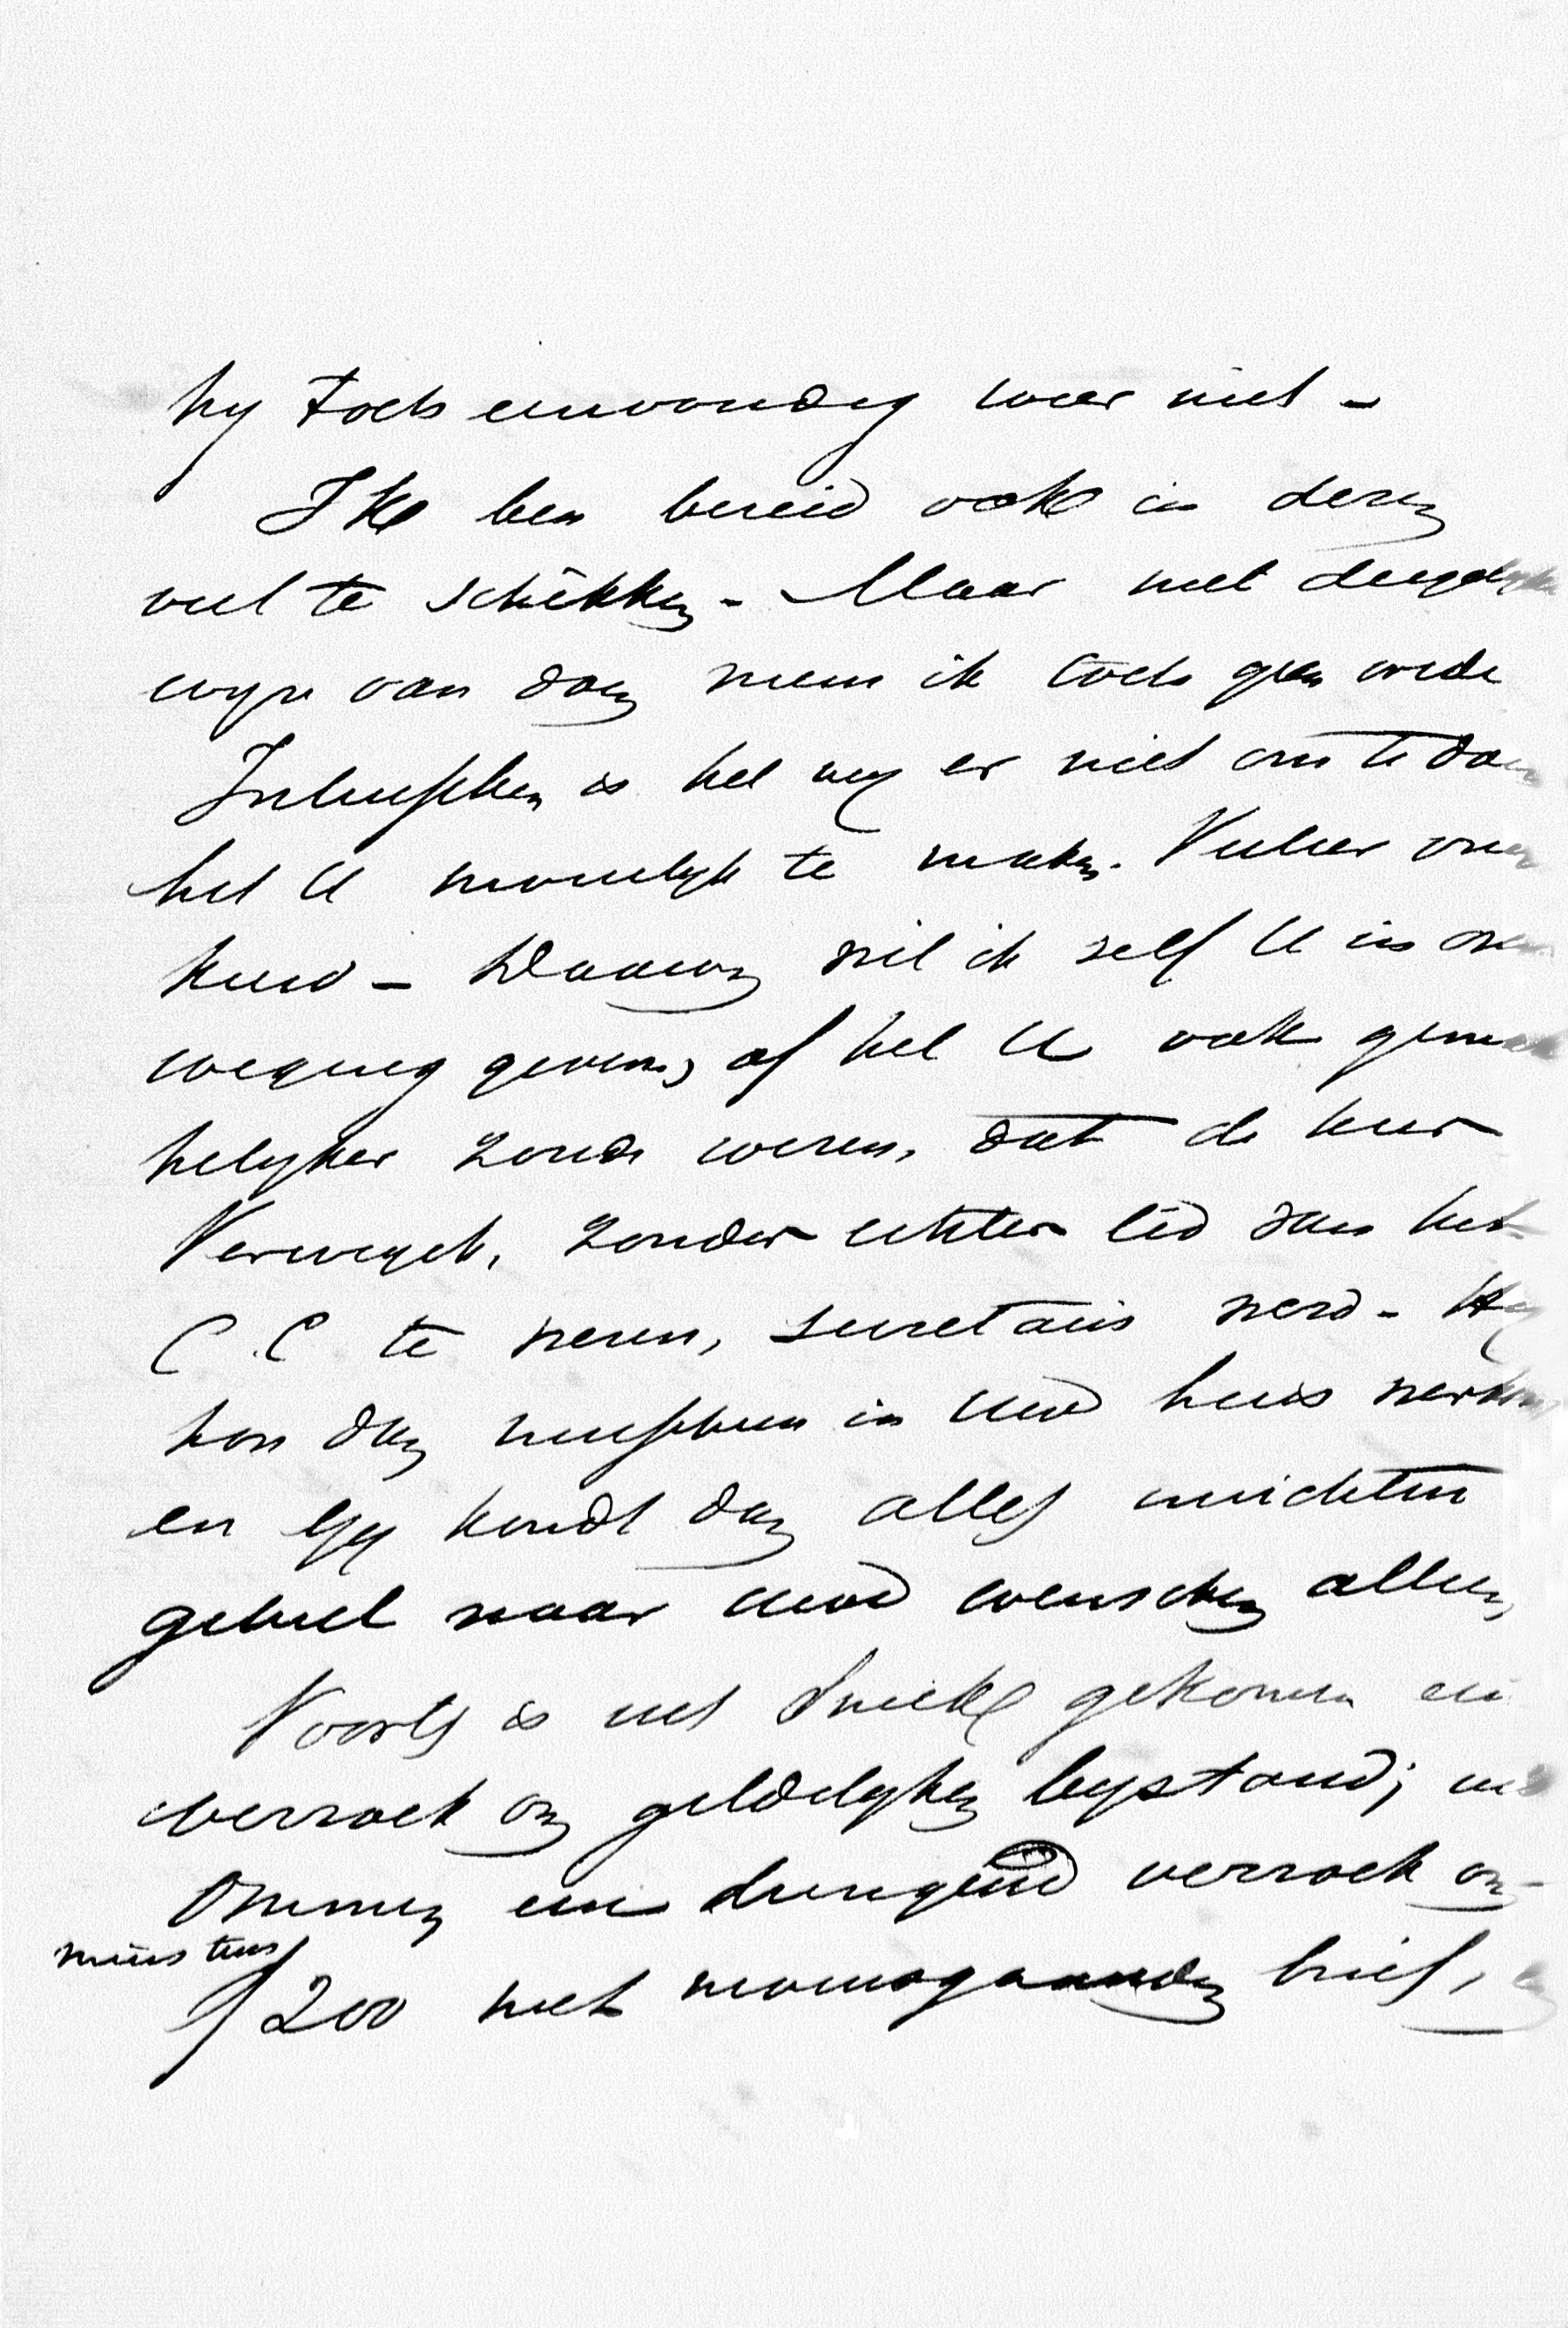 hy toch eenvoudig weer niet -
Ik ben bereid ook in dezen
veel te schikken - Maar met dergelyke
wyze van doen neem ik toch geen vrede
Intusschen is het my er niet om te doen
het U moeielyk te maken. Veeleer om
keerd - Daarom wil ik zelf U in over
weging geven, of het U ook gemak
kelyker zoude wezen, dat de heer
Verweyck, zonder echter lid van het
C.C te wezen, secretaris werd - Hy
kon dan misschien in uw huis werken
en Gy kondt dan alles inrichten
geheel naar uwe wenschen alleen,
Voorts is uit Sneek gekomen een
verzoek om geldelyken bystand; uit
Ommen een dringend verzoek om
minstens
f 200 met nevensgaanden brief, en